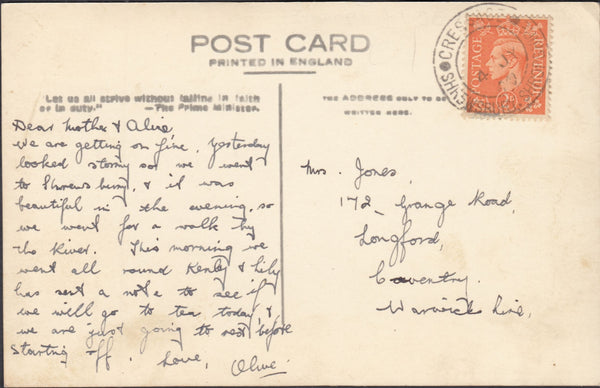 POST CARD
PRINTED IN ENGLAND
"Let us all strive without failing in faith
or in duty." —The Prime Minister.
THE ADDRESS ONLY TO BE
WRITTEN HERE.
POSTAGE REVENUE
2D
CRES SHREWSBURY
Dear Mother & Alice,
We are getting on fine, yesterday
looked stormy so we went
to Shrewsbury, & it was
beautiful in the evening, so
we went for a walk by
the River. This morning we
went all round Kenley & Lily
has sent a note to see if
we will go to tea today, &
we are just going to rest before
starting off. Love, Olive.
Mrs. Jones,
172, Grange Road,
Longford,
Coventry.
Warwickshire,